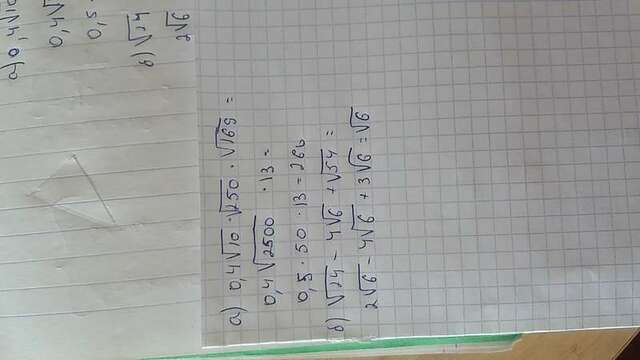 а) 0,4√10
0,4√
0,5 ·
б) √24
2√6
а) 0,4√10 · √250 · √169 =
0,4√2500 · 13 =
0,5 · 50 · 13 = 260
б) √24 - 4√6 + √54 =
2√6 - 4√6 + 3√6 = √6